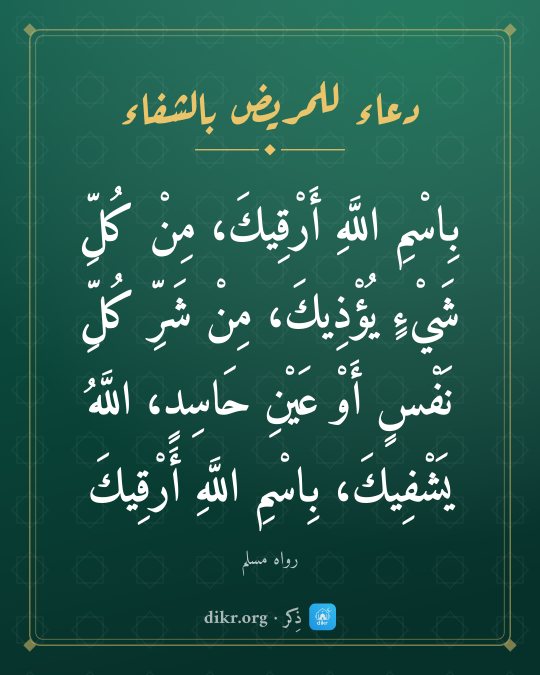 دعاء للمريض بالشفاء
بِاسْمِ اللَّهِ أَرْقِيكَ، مِنْ كُلِّ
شَيْءٍ يُؤْذِيكَ، مِنْ شَرِّ كُلِّ
نَفْسٍ أَوْ عَيْنِ حَاسِدٍ، اللَّهُ
يَشْفِيكَ، بِاسْمِ اللَّهِ أَرْقِيكَ
رواه مسلم
ذِكر · dikr.org
dikr